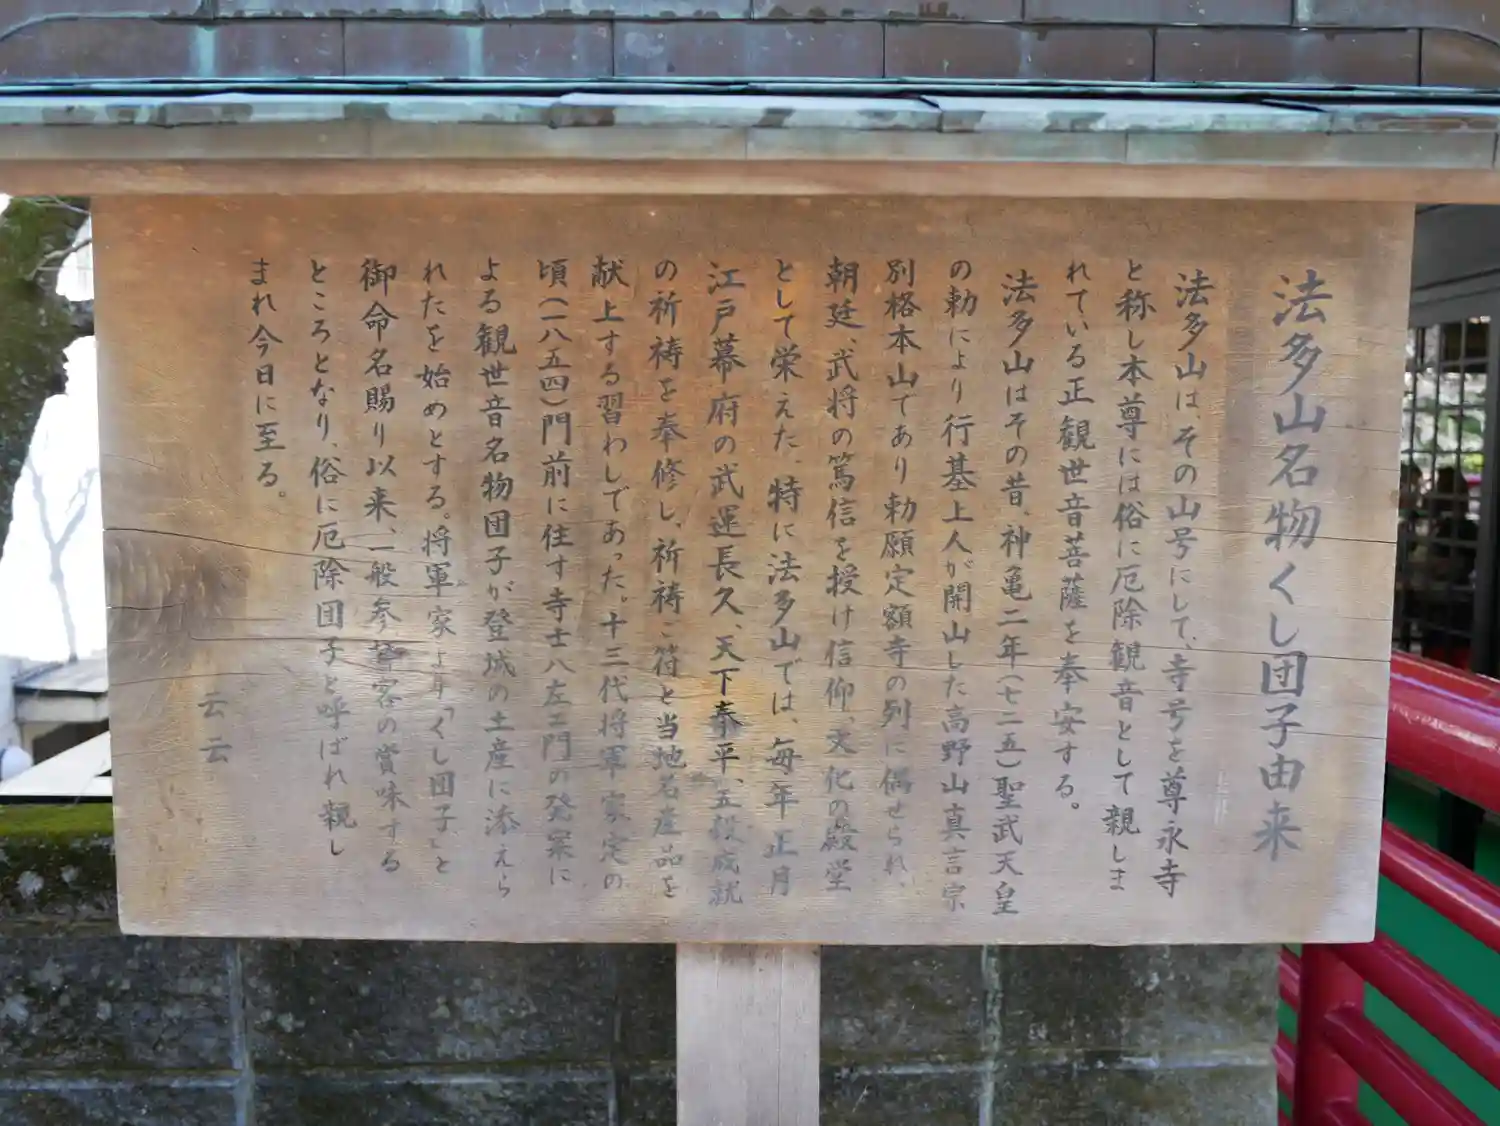 法多山名物くし団子由来
法多山は、その山号にして、寺号を尊永寺
と称し本尊には俗に厄除観音として親しま
れている正観世音菩薩を奉安する。
法多山はその昔、神亀二年(七二五)聖武天皇
の勅により行基上人が開山した高野山真言宗
別格本山であり勅願定額寺の列に偶せられ、
朝廷、武将の篤信を授け信仰、文化の殿堂
として栄えた、特に法多山では、毎年正月
江戸幕府の武運長久、天下泰平、五穀成就
の祈祷を奉修し、祈祷ご符と当地名産品を
献上する習わしであった。十三代将軍家定の
頃(一八五四)門前に住す寺士八左ェ門の発案に
よる観世音名物団子が登城の土産に添えら
れたを始めとする。将軍家より「くし団子」と
御命名賜り以来、一般参詣客の賞味する
ところとなり、俗に厄除団子と呼ばれ親し
まれ今日に至る。
云云